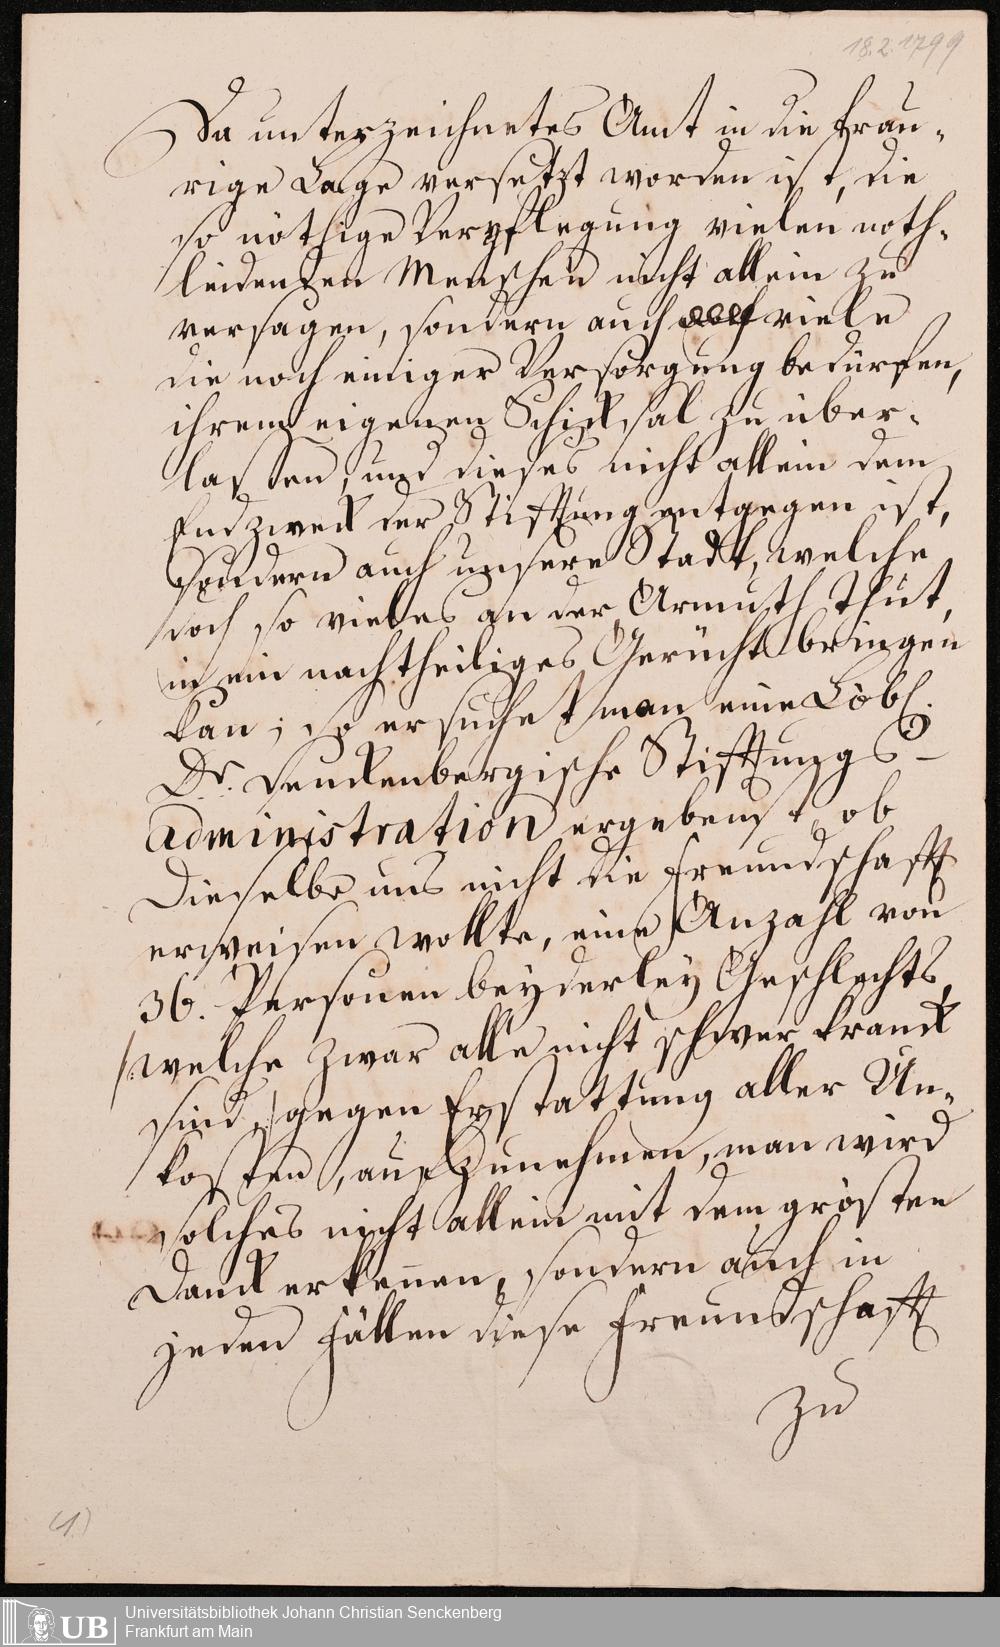 18.2.1799
Da unterzeichnetes Amt in die trau-
rige Lage versetzt worden ist, die
so nöthige Verpflegung vielen noth-
leidenden Menschen nicht allein zu
versagen, sondern auch viele
die noch einiger Versorgung bedürfen,
ihrem eigenen Schicksal zu über-
lassen, und dieses nicht allein dem
Endzweck der Stifftung entgegen ist,
sondern auch unsere Stadt, welche
doch so vieles an der Armuth thut,
in ein nachtheiliges Gerücht bringen
kan; so ersuchet man eine Löbl.
Dr. Senckenbergische Stifftungs-
administration ergebenst, ob
Dieselbe uns nicht die Freundschafft
erweisen wollte, eine Anzahl von
36. Personen beyderley Geschlechts,
/: welche zwar alle nicht schwer kranck
sind :/ gegen Erstattung aller Un-
kosten, aufzunehmen, man wird
solches nicht allein mit dem grösten
Danck erkennen, sondern auch in
jeden Fällen diese Freundschafft
zu
(1.)
UB
Universitätsbibliothek Johann Christian Senckenberg
Frankfurt am Main